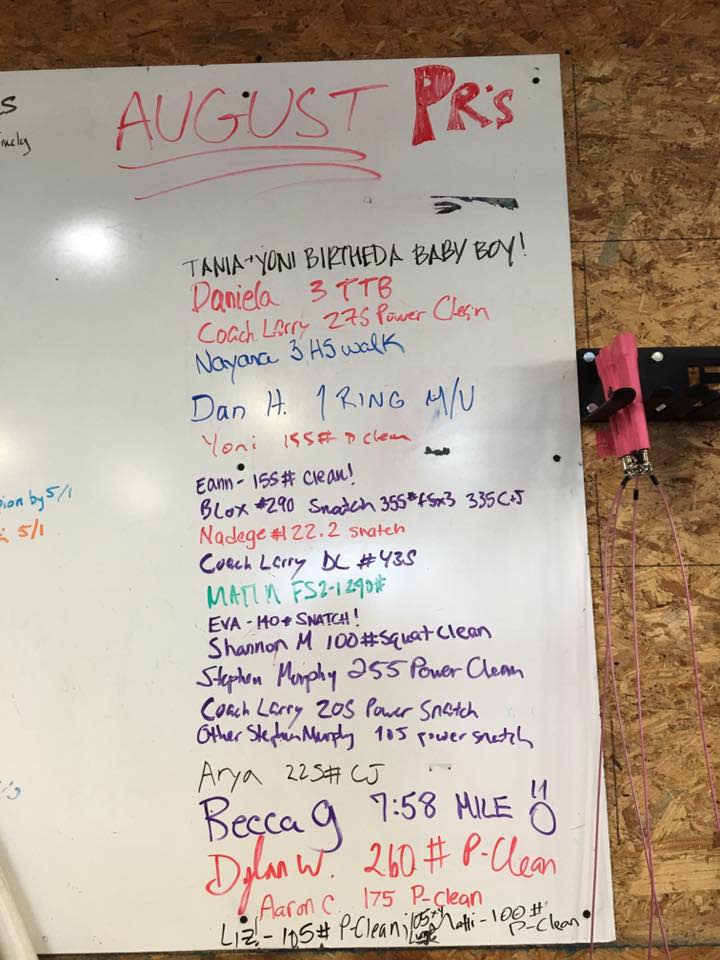 AUGUST PR's
TANIA + YONI BIRTHED A BABY BOY!
Daniela 3 TTB
Coach Larry 275 Power Clean
Nayara 3 HS walk
Dan H. 1 RING M/U
Yoni 155# P clean
Eann - 155# Clean!
Blox #290 Snatch 355# FSx3 335 C+J
Nadege #122.2 snatch
Coach Larry DL #435
MATT N FS 2-1 290#
EVA - 110# SNATCH!
Shannon M 100# Squat Clean
Stephen Murphy 255 Power Clean
Coach Larry 205 Power Snatch
Other Stephen Murphy 105 power snatch
Arya 225# CJ
Becca g 7:58 MILE
Dylan W. 260# P-Clean
Aaron C 175 P-clean
Liz! - 105# P-Clean; 105 Matti - 100# P-Clean
ion by 5/1
5/1